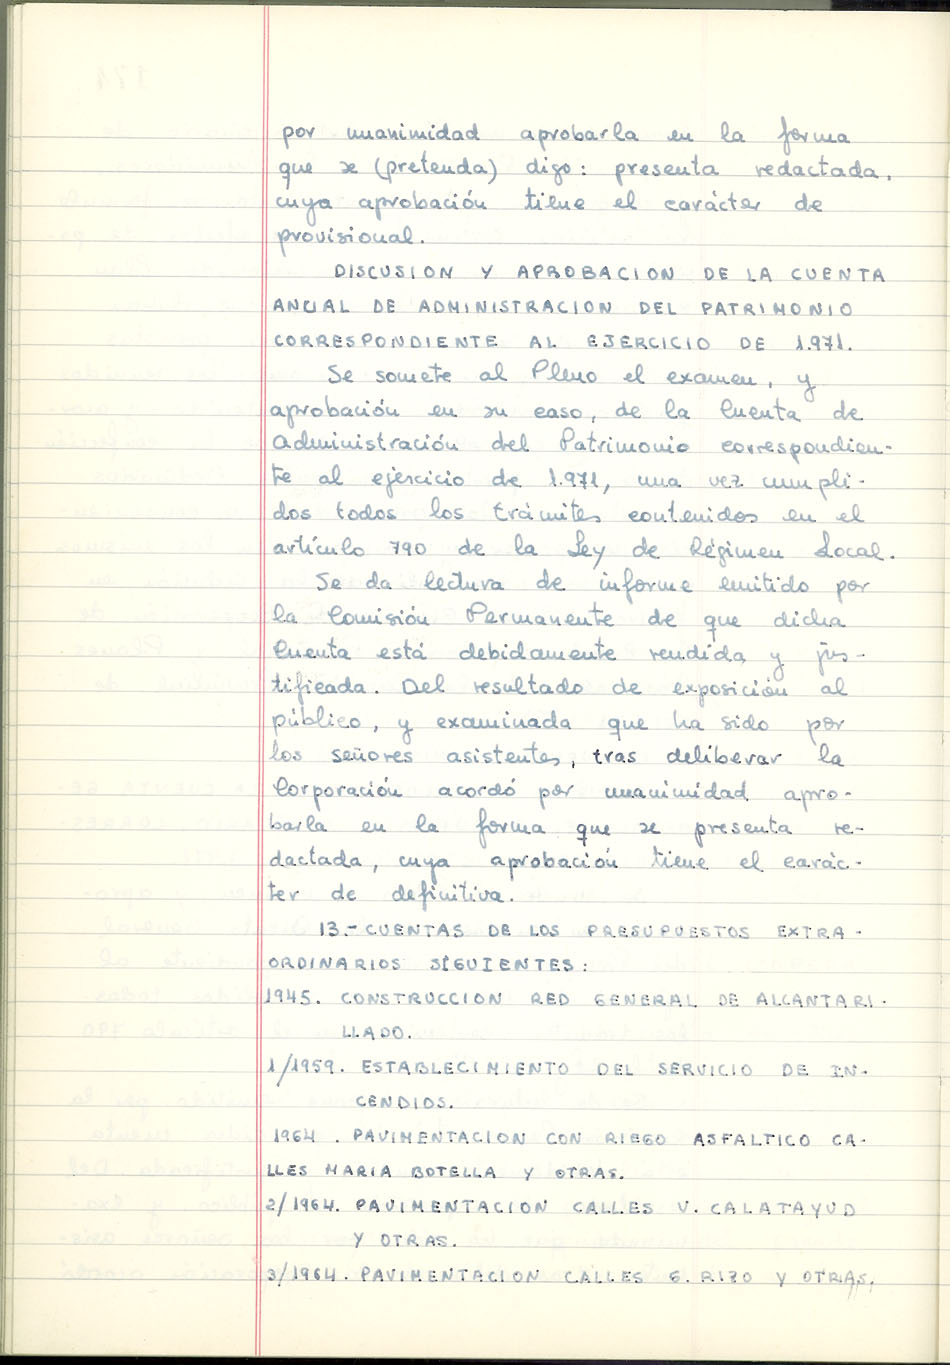 por unanimidad aprobarla en la forma
que se (pretenda) digo: presenta redactada,
cuya aprobación tiene el carácter de
provisional.
DISCUSION Y APROBACION DE LA CUENTA
ANUAL DE ADMINISTRACION DEL PATRIMONIO
CORRESPONDIENTE AL EJERCICIO DE 1.971.
Se somete al Pleno el examen, y
aprobación en su caso, de la Cuenta de
Administración del Patrimonio correspondien-
te al ejercicio de 1.971, una vez cumpli-
dos todos los trámites contenidos en el
artículo 790 de la Ley de Régimen Local.
Se da lectura de informe emitido por
la Comisión Permanente de que dicha
Cuenta está debidamente rendida y jus-
tificada. Del resultado de exposición al
público, y examinada que ha sido por
los señores asistentes, tras deliberar la
Corporación acordó por unanimidad apro-
barla en la forma que se presenta re-
dactada, cuya aprobación tiene el carác-
ter de definitiva.
13.- CUENTAS DE LOS PRESUPUESTOS EXTRA-
ORDINARIOS SIGUIENTES:
1945. CONSTRUCCION RED GENERAL DE ALCANTARI-
LLADO.
1/1959. ESTABLECIMIENTO DEL SERVICIO DE IN-
CENDIOS.
1964. PAVIMENTACION CON RIEGO ASFALTICO CA-
LLES MARIA BOTELLA Y OTRAS.
2/1964. PAVIMENTACION CALLES V. CALATAYUD
Y OTRAS.
3/1964. PAVIMENTACION CALLES G. RIZO Y OTRAS.